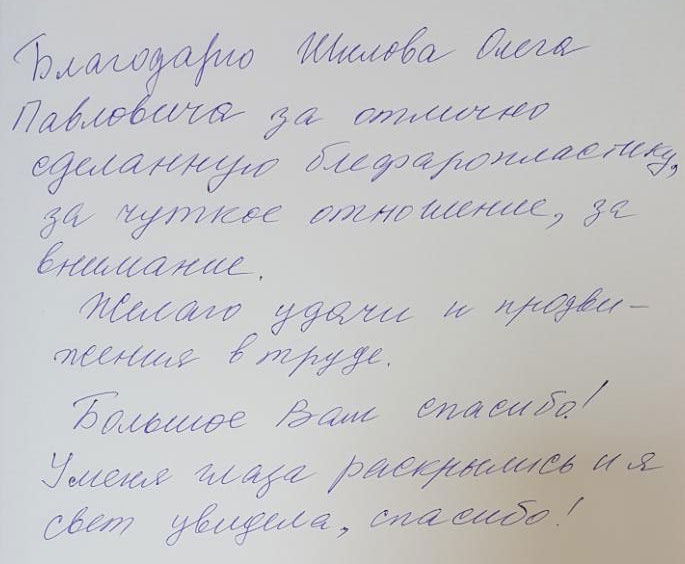 Благодарю Шилова Олега
Павловича за отлично
сделанную блефаропластику,
за чуткое отношение, за
внимание.
Желаю удачи и продви-
жения в труде.
Большое Вам спасибо!
У меня глаза раскрылись и я
свет увидела, спасибо!